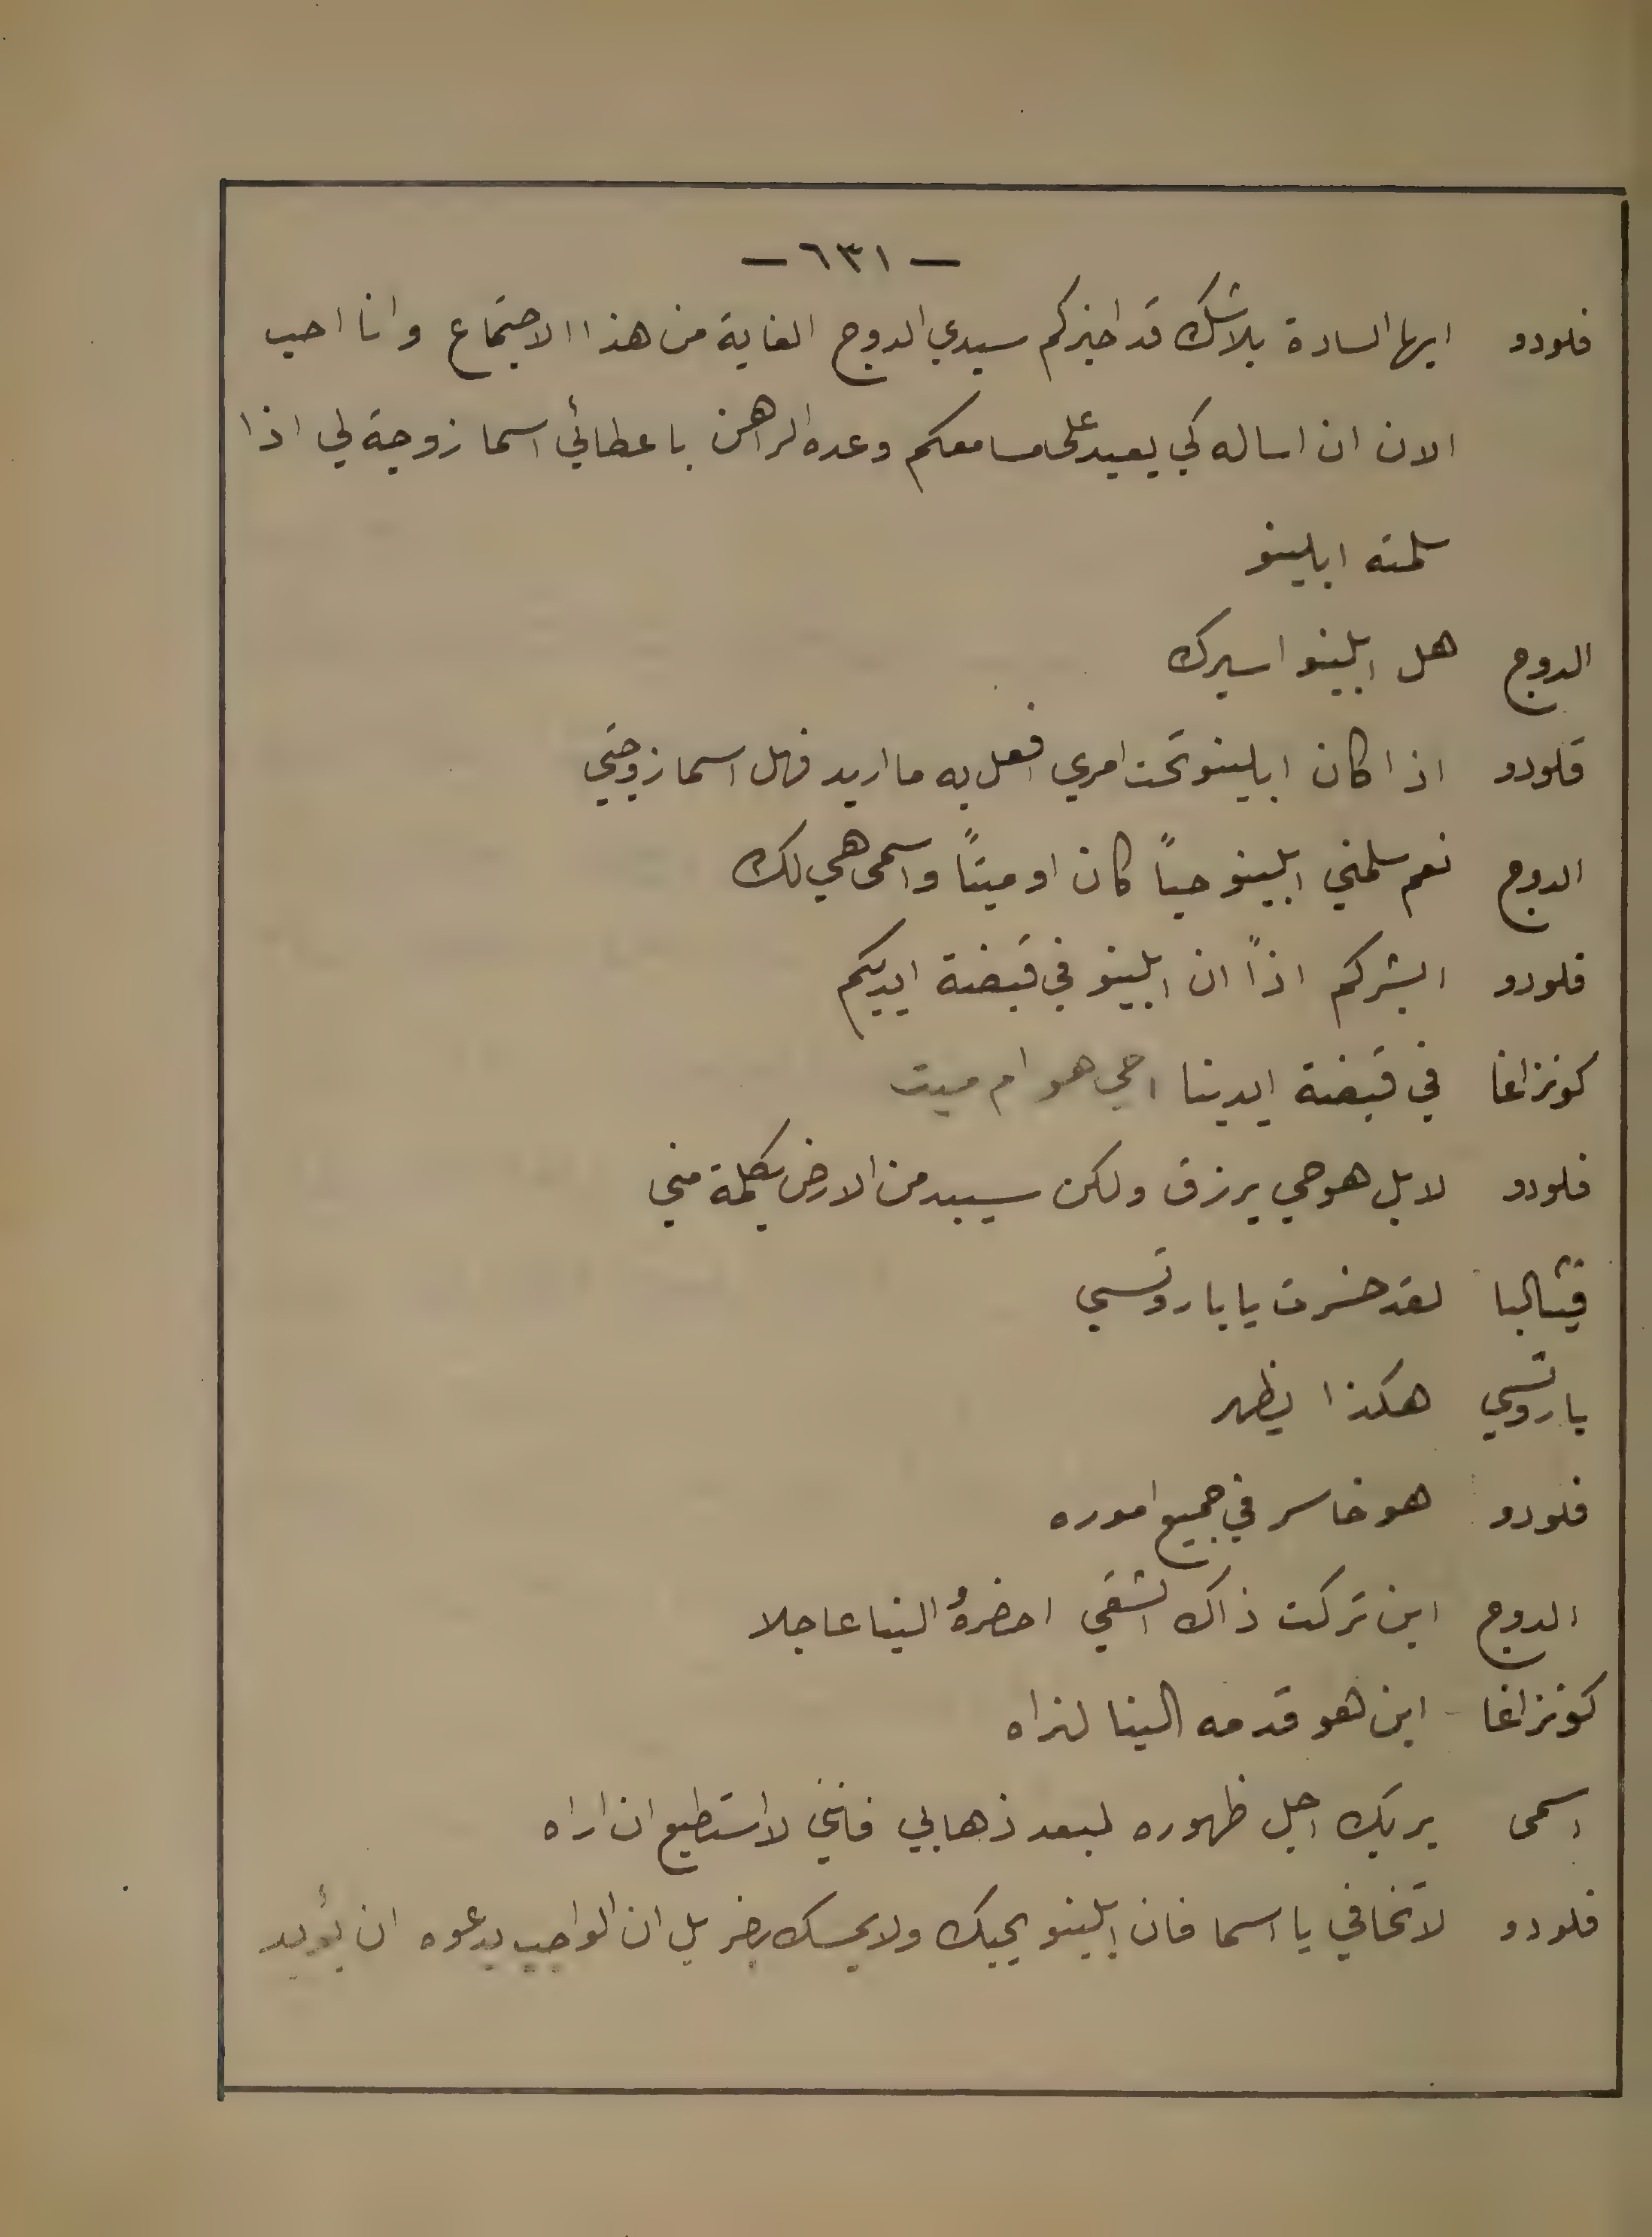 — ٦٣١ —
فلودو ايها السادة بلاشك قد اخبركم سيدي الدوج الغاية من هذا الاجتماع وانا احب
الان ان اساله كي يعيد على مسامعكم وعده الراهن باعطائي اسما زوجة لي اذا
سلمته ابلينو
الدوج هل ابلينو اسيرك
فلودو اذا كان ابلينو تحت امري افعل به ما اريد فهل اسما زوجتي
الدوج نعم سلمني ابلينو حياً كان او ميتاً واسمى هي لك
فلودو ابشركم اذاً ان ابلينو في قبضة ايديكم
كونزاغا في قبضة ايدينا احي هو ام ميت
فلودو لا بل هو حي يرزق ولكن سيبيد من الارض بكلمة مني
قيتالبا لقد خسرت يا باروتسي
باروتسي هكذا يظهر
فلودو هو خاسر في جميع اموره
الدوج اين تركت ذاك الشقي احضرهُ الينا عاجلا
كونزاغا - اين هو قدمه الينا لنراه
اسمى بربك اجل ظهوره لبعد ذهابي فانني لا استطيع ان اراه
فلودو لا تخافي يا اسما فان ابلينو يحبك ولا يمسك بضر بل ان الواجب يدعوه ان يؤيد